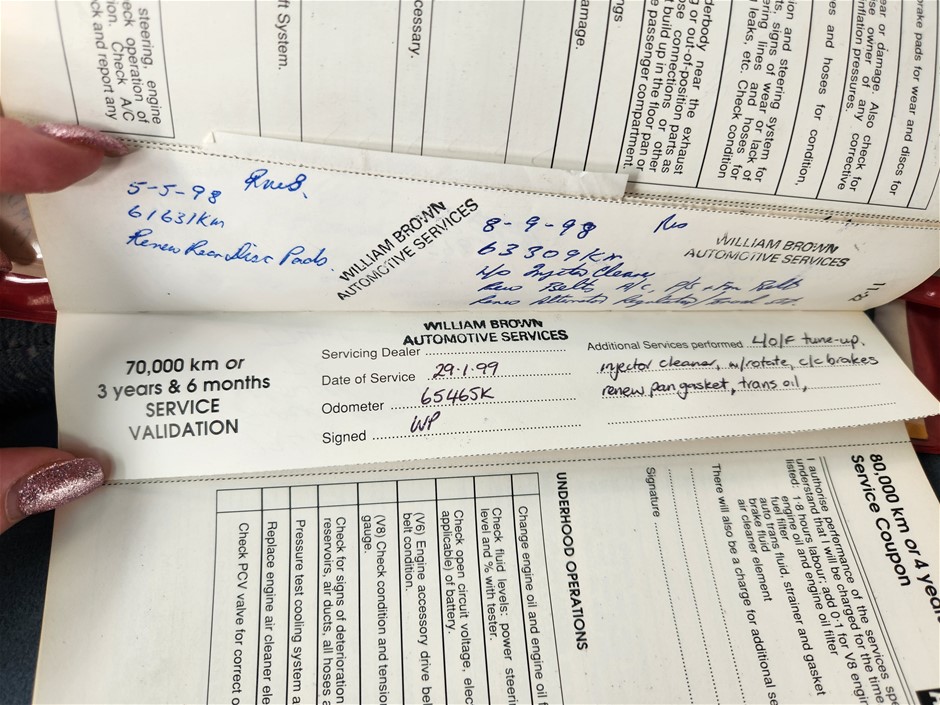 brake pads for wear and discs for
ear or damage. Also check for
ise owner of any corrective
inflation pressures.
ves and hoses for condition,
ion and steering system for
ts, signs of wear or lack of
ering lines and hoses for
leaks, etc. Check condition
derbody near the exhaust
g or out-of-position parts as
ose connections or other
t build up in the floor pan or
e passenger compartment.
ngs
amage.
cessary.
ft System.
steering, engine
eck operation of
ion. Check A/C
ck and report any
5-5-98
61631Km
Renew Rear Disc Pads.
WILLIAM BROWN
AUTOMOTIVE SERVICES
8-9-98
63309Km
Injector Cleaner
Renew Belts A/C, P/s + Belts
Renew Alternator Regulator/
WILLIAM BROWN
AUTOMOTIVE SERVICES
70,000 km or
3 years & 6 months
SERVICE
VALIDATION
WILLIAM BROWN
AUTOMOTIVE SERVICES
Servicing Dealer
Date of Service 29.1.99
Odometer 65465K
Signed WP
Additional Services performed 4/O/F tune-up,
injector cleaner, w/rotate, c/c brakes
renew pan gasket, trans oil,
80,000 km or 4 year
Service Coupon
I authorise performance of the services spe
understand that I will be charged for the time
listed: 1·8 hours labour; add 0·1 for V8 engin
engine oil and engine oil filter
fuel filter
auto trans fluid, strainer and gasket
brake fluid
air cleaner element
There will also be a charge for additional se
Signature
UNDERHOOD OPERATIONS
Change engine oil and engine oil f
Check fluid levels: power steerin
level and % with tester.
Check open circuit voltage, elect
applicable) of battery.
(V6) Engine accessory drive bel
belt condition.
(V8) Check condition and tension
gauge.
Check for signs of deterioration
reservoirs, air ducts, all hoses a
Pressure test cooling system a
Replace engine air cleaner ele
Check PCV valve for correct o